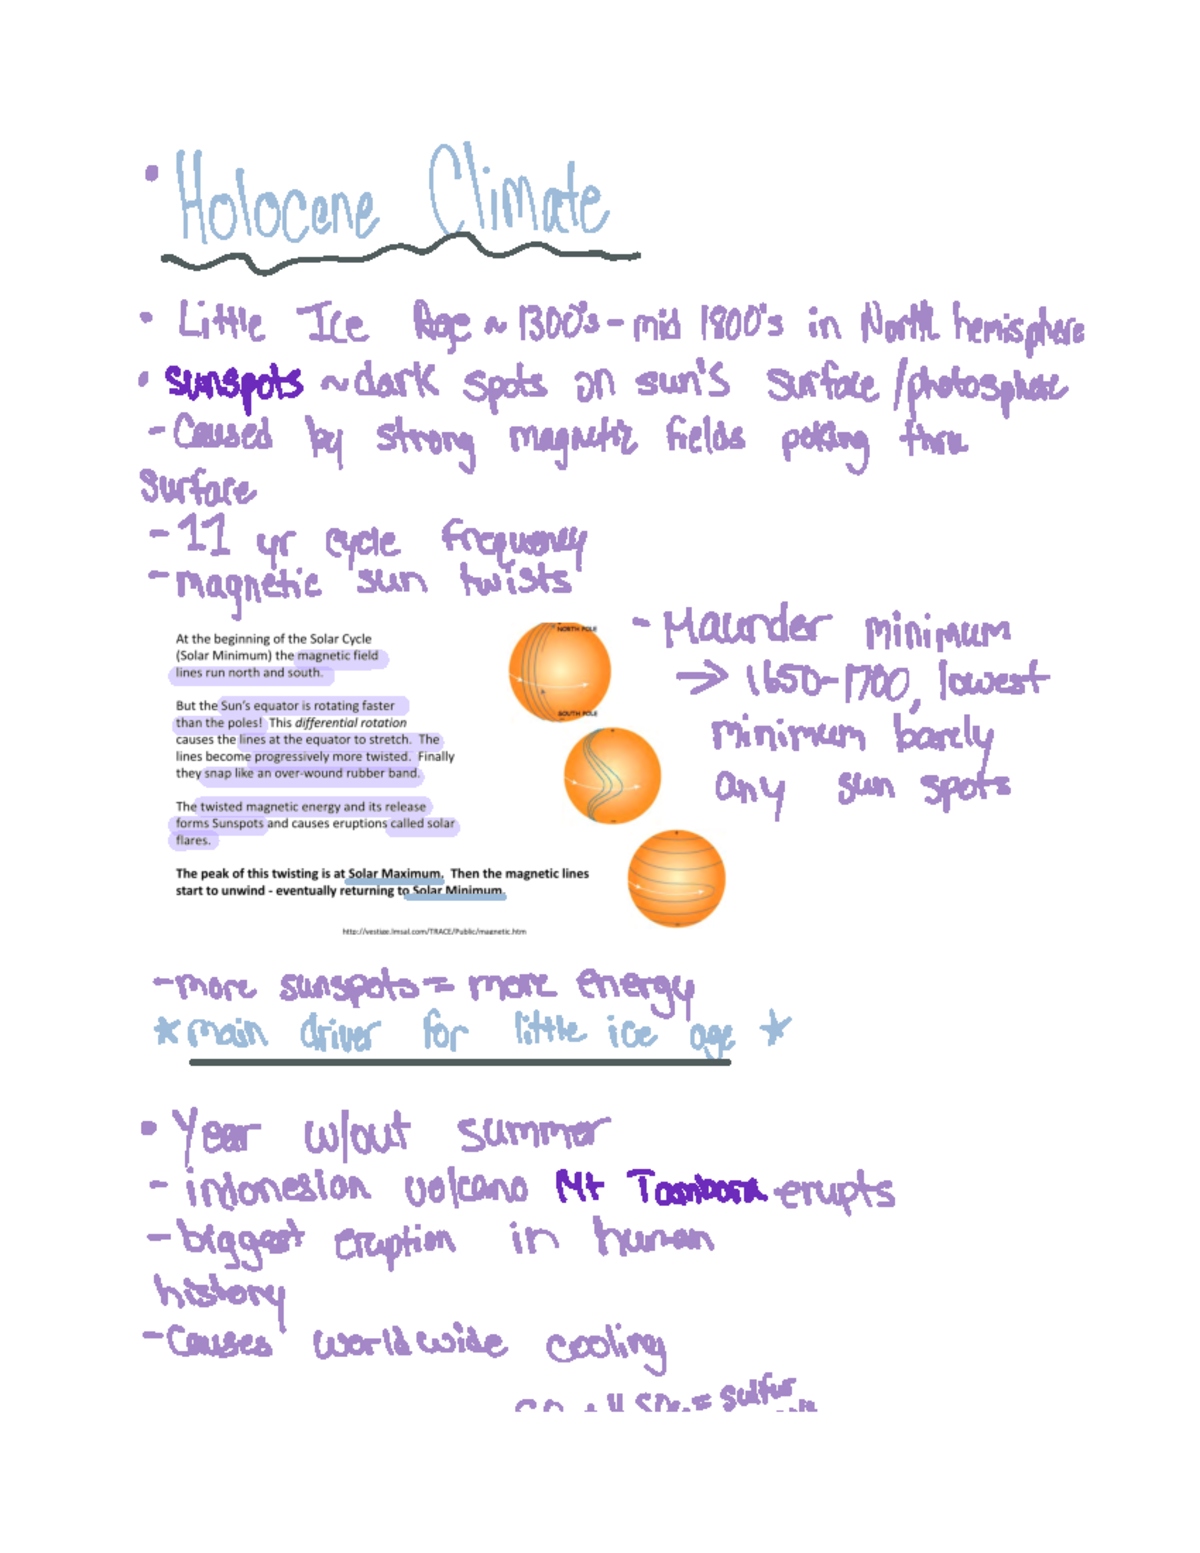 • Holocene Climate
• Little Ice Age ~ 1300's - mid 1800's in North hemisphere
• sunspots ~ dark spots on sun's surface / photosphere
- Caused by strong magnetic fields poking thru
surface
- 11 yr cycle frequency
- magnetic sun twists
At the beginning of the Solar Cycle
(Solar Minimum) the magnetic field
lines run north and south.
But the Sun's equator is rotating faster
than the poles! This differential rotation
causes the lines at the equator to stretch. The
lines become progressively more twisted. Finally
they snap like an over-wound rubber band.
The twisted magnetic energy and its release
forms Sunspots and causes eruptions called solar
flares.
The peak of this twisting is at Solar Maximum. Then the magnetic lines
start to unwind - eventually returning to Solar Minimum.
http://vestige.lmsal.com/TRACE/Public/magnetic.htm
NORTH POLE
SOUTH POLE
- Maunder minimum
→ 1650-1700, lowest
minimum barely
any sun spots
- more sunspots = more energy
* main driver for little ice age *
• Year w/out summer
- indonesian volcano Mt Tambora erupts
- biggest eruption in human
history
- Causes worldwide cooling
= sulfur